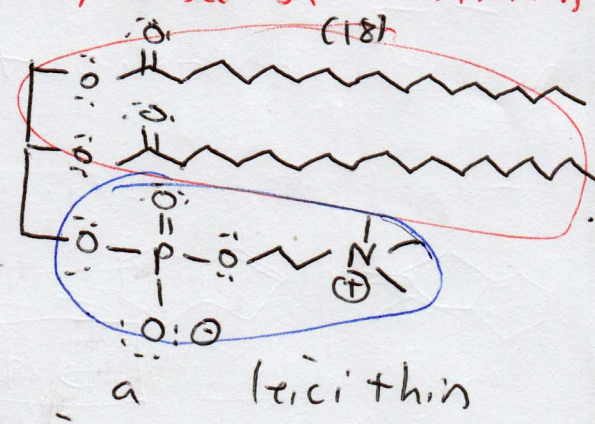 O (18)
O
O
O
O
O P O N
+
O −
a leicithin